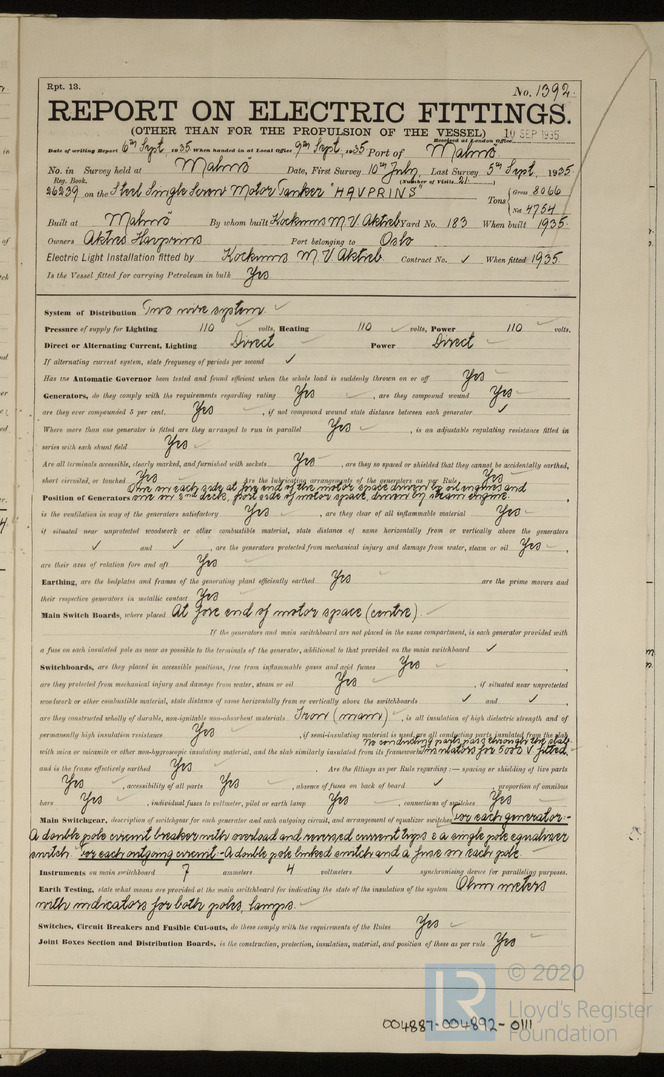 Rpt. 13.
No. 1392.
REPORT ON ELECTRIC FITTINGS.
(OTHER THAN FOR THE PROPULSION OF THE VESSEL)
Received at London Office 10 SEP 1935
Date of writing Report 6th Sept. 1935 When handed in at Local Office 9th Sept. 1935 Port of Malmö
No. in Survey held at Malmö Date, First Survey 10th July Last Survey 5th Sept. 1935
Reg. Book. (Number of Visits 21.)
26239 on the Steel Single Screw Motor Tanker "HAVPRINS" Tons { Gross 8066
Net 4754
Built at Malmö By whom built Kockums M.V. Aktieb Yard No. 183 When built 1935
Owners Aktres Havprins Port belonging to Oslo
Electric Light Installation fitted by Kockums M.V. Aktieb Contract No. ✓ When fitted 1935
Is the Vessel fitted for carrying Petroleum in bulk Yes
System of Distribution Two wire system
Pressure of supply for Lighting 110 volts, Heating 110 volts, Power 110 volts.
Direct or Alternating Current, Lighting Direct Power Direct
If alternating current system, state frequency of periods per second ✓
Has the Automatic Governor been tested and found efficient when the whole load is suddenly thrown on or off Yes
Generators, do they comply with the requirements regarding rating Yes, are they compound wound Yes
are they over compounded 5 per cent. Yes, if not compound wound state distance between each generator ✓
Where more than one generator is fitted are they arranged to run in parallel Yes, is an adjustable regulating resistance fitted in
series with each shunt field Yes
Are all terminals accessible, clearly marked, and furnished with sockets Yes, are they so spaced or shielded that they cannot be accidentally earthed,
short circuited, or touched Yes Are the lubricating arrangements of the generators as per Rule Yes
One on each side at fore end of the motor space driven by oil engines and
Position of Generators one on 2nd deck, port side of motor space, driven by steam engine
is the ventilation in way of the generators satisfactory Yes, are they clear of all inflammable material Yes
if situated near unprotected woodwork or other combustible material, state distance of same horizontally from or vertically above the generators
✓ and ✓, are the generators protected from mechanical injury and damage from water, steam or oil Yes,
are their axes of rotation fore and aft Yes
Earthing, are the bedplates and frames of the generating plant efficiently earthed Yes are the prime movers and
their respective generators in metallic contact Yes
Main Switch Boards, where placed At fore end of motor space (centre).
If the generators and main switchboard are not placed in the same compartment, is each generator provided with
a fuse on each insulated pole as near as possible to the terminals of the generator, additional to that provided on the main switchboard ✓
Switchboards, are they placed in accessible positions, free from inflammable gases and acid fumes Yes,
are they protected from mechanical injury and damage from water, steam or oil Yes, if situated near unprotected
woodwork or other combustible material, state distance of same horizontally from or vertically above the switchboards ✓ and ✓,
are they constructed wholly of durable, non-ignitable non-absorbent materials Iron (main), is all insulation of high dielectric strength and of
permanently high insulation resistance Yes, if semi-insulating material is used, are all conducting parts insulated from the slab
No conducting parts pass through the slab.
with mica or micanite or other non-hygroscopic insulating material, and the slab similarly insulated from its framework Insulators for 5000 V fitted.
and is the frame effectively earthed Yes. Are the fittings as per Rule regarding:— spacing or shielding of live parts
Yes, accessibility of all parts Yes, absence of fuses on back of board ✓, proportion of omnibus
bars Yes, individual fuses to voltmeter, pilot or earth lamp Yes, connections of switches Yes
Main Switchgear, description of switchgear for each generator and each outgoing circuit, and arrangement of equalizer switches For each generator:-
A double pole circuit breaker with overload and reversed current trips & a single pole equalizer
switch. For each outgoing circuit:- A double pole linked switch and a fuse on each pole.
Instruments on main switchboard 7 ammeters 4 voltmeters ✓ synchronising device for paralleling purposes.
Earth Testing, state what means are provided at the main switchboard for indicating the state of the insulation of the system Ohm meters
with indicators for both poles, lamps.
Switches, Circuit Breakers and Fusible Cut-outs, do these comply with the requirements of the Rules Yes
Joint Boxes Section and Distribution Boards, is the construction, protection, insulation, material, and position of these as per rule Yes
© 2020
LR
Lloyd's Register
Foundation
004887-004892-0111